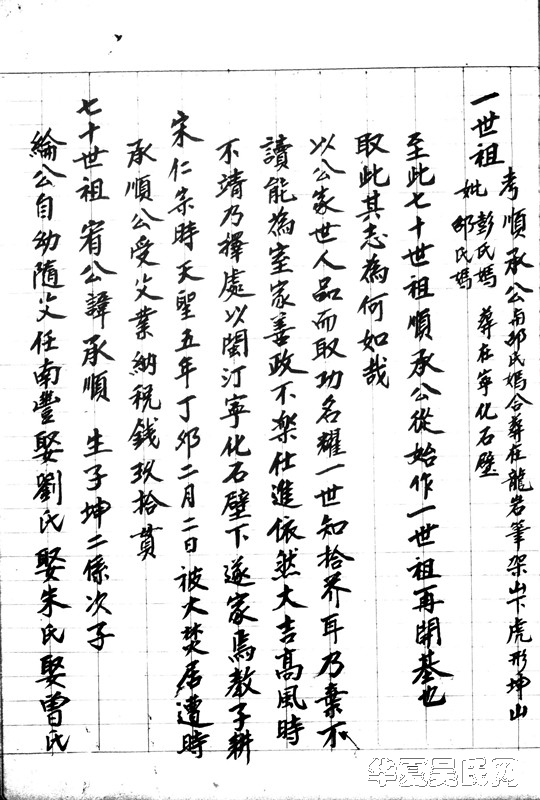 一世祖
考順承公与邱氏媽合葬在龍岩筆架山下虎形坤山
妣彭氏媽 葬在寧化石壁
邱氏媽
至此七十世祖順承公從始作一世祖再開基也
取此其志為何如哉
以公家世人品而取功名耀一世知拾芥耳乃棄不
讀能為室家善政不樂仕進依然大吉高風時
不靖乃擇處以閩汀寧化石壁下遂家焉教子耕
宋仁宗時天聖五年丁卯二月二日被火焚居遭時
承順公受父業納稅錢玖拾貫
七十世祖宥公諱承順 生子坤二係次子
綸公自幼隨父任南豐娶劉氏娶朱氏娶曾氏
华夏吴氏网